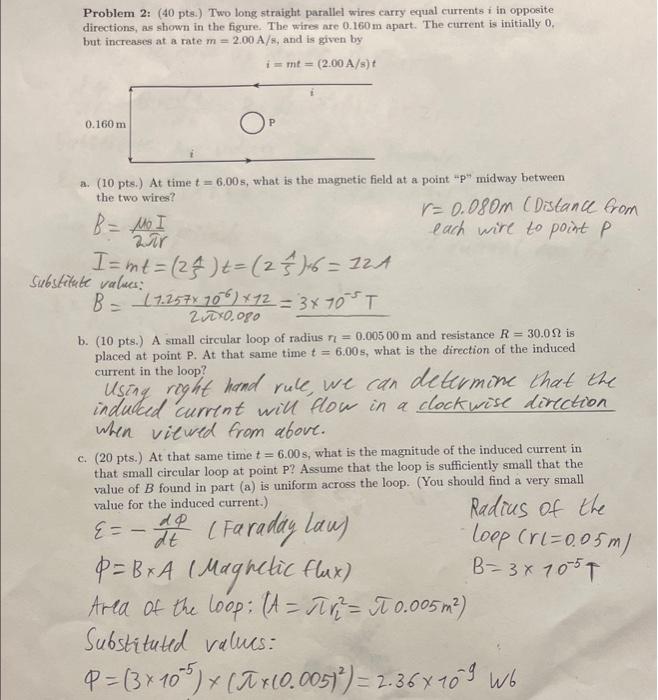 Problem 2: (40 pts.) Two long straight parallel wires carry equal currents i in opposite
directions, as shown in the figure. The wires are 0.160 m apart. The current is initially 0,
but increases at a rate m = 2.00 A/s, and is given by
i = mt = (2.00 A/s) t
i
0.160 m
P
i
a. (10 pts.) At time t = 6.00 s, what is the magnetic field at a point "P" midway between
the two wires?
r = 0.080m (Distance from
each wire to point P
B = μ0 I / 2πr
I = mt = (2 A/s) t = (2 A/s)·6 = 12A
Substitute values:
B = (1.257×10⁻⁶)×12 / 2π×0.080 = 3×10⁻⁵ T
b. (10 pts.) A small circular loop of radius rₗ = 0.005 00 m and resistance R = 30.0 Ω is
placed at point P. At that same time t = 6.00 s, what is the direction of the induced
current in the loop?
Using right hand rule, we can determine that the
induced current will flow in a clockwise direction
when viewed from above.
c. (20 pts.) At that same time t = 6.00 s, what is the magnitude of the induced current in
that small circular loop at point P? Assume that the loop is sufficiently small that the
value of B found in part (a) is uniform across the loop. (You should find a very small
value for the induced current.)
Radius of the
loop (rl=0.05m)
B = 3×10⁻⁵ T
ε = - dφ/dt (Faraday law)
φ = B×A (Magnetic flux)
Area of the loop: (A = πrₗ² = π 0.005m²)
Substituted values:
φ = (3×10⁻⁵) × (π×(0.005)²) = 2.36×10⁻⁹ Wb